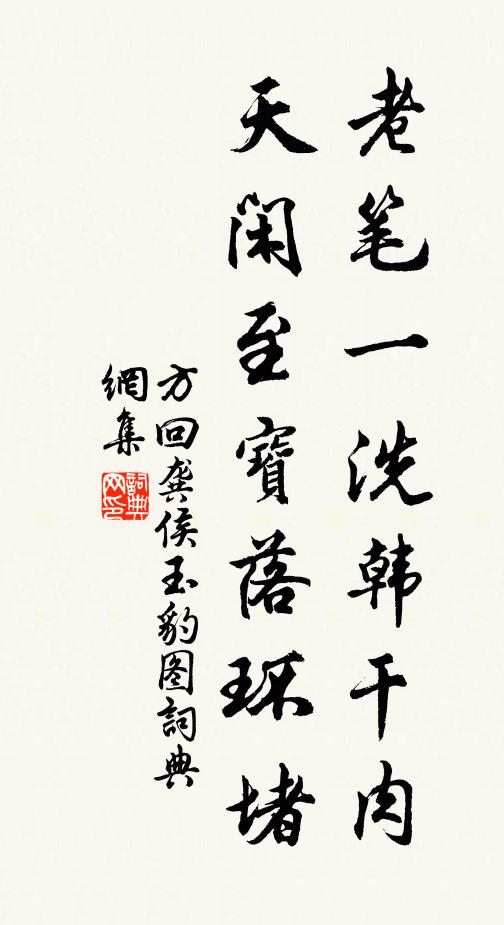 老笔一洗韩干肉
天闲至寶落环堵
方回龚侯玉豹图詞典
網集
詞典
网印